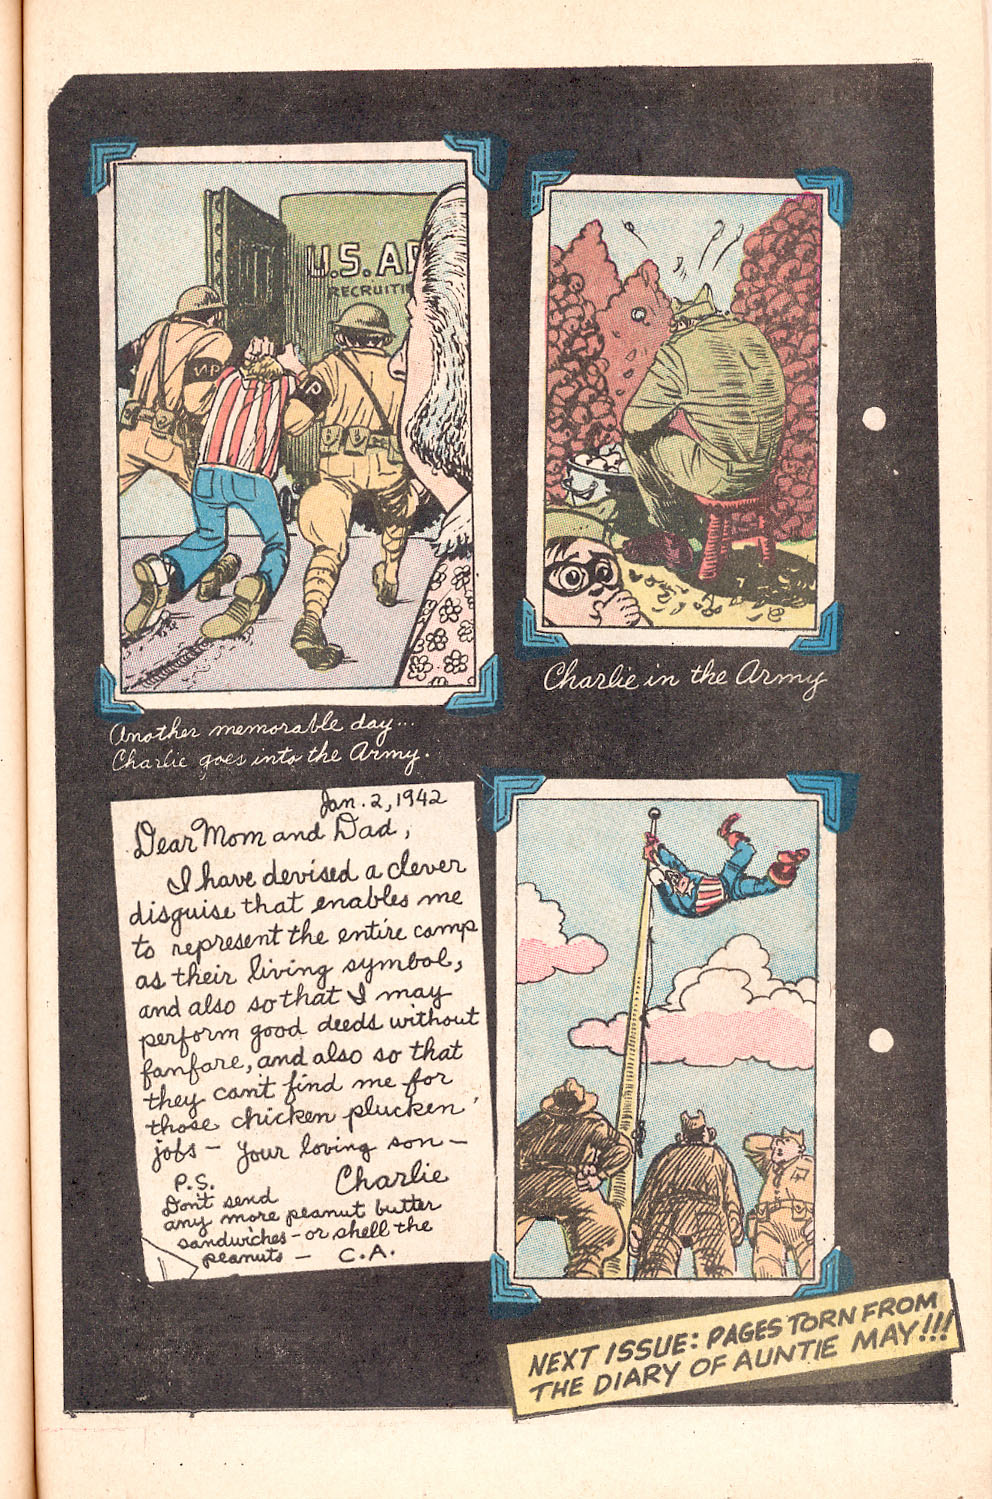 U.S. AR
RECRUITI
MP
P
Another memorable day...
Charlie goes into the Army.
Charlie in the Army
Jan. 2, 1942
Dear Mom and Dad,
I have devised a clever
disguise that enables me
to represent the entire camp
as their living symbol,
and also so that I may
perform good deeds without
fanfare, and also so that
they can't find me for
those chicken plucken'
jobs — Your loving son —
Charlie
P.S.
Don't send
any more peanut butter
sandwiches - or shell the
peanuts — C.A.
NEXT ISSUE: PAGES TORN FROM
THE DIARY OF AUNTIE MAY!!!